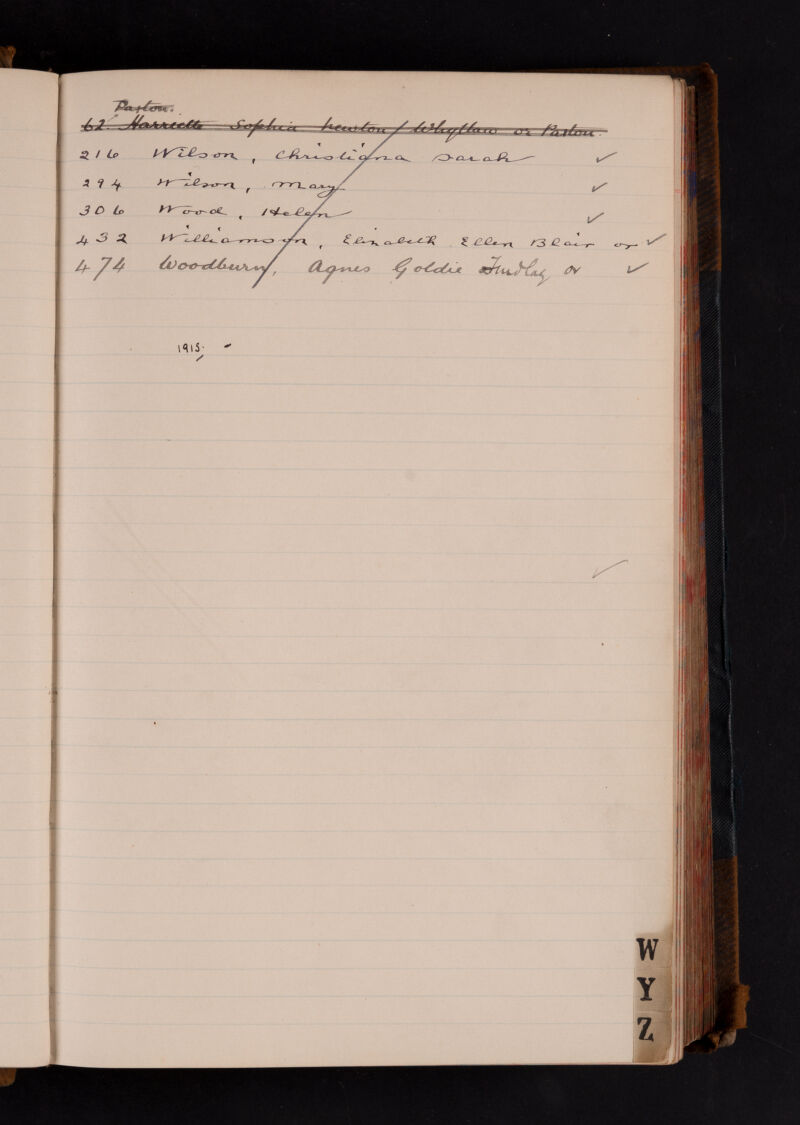 Paston.
62. Harriette Sophia Newton Whytlaw or Paston.
216 Wilson, Christiana Sarah ✓
294 Wilson, Mary ✓
306 Wood, Helen ✓
432 Williamson, Elizabeth Ellen Blair or ✓
474 Woodburn, Agnes Goldie Findlay or ✓
1915.
✓
W
Y
Z